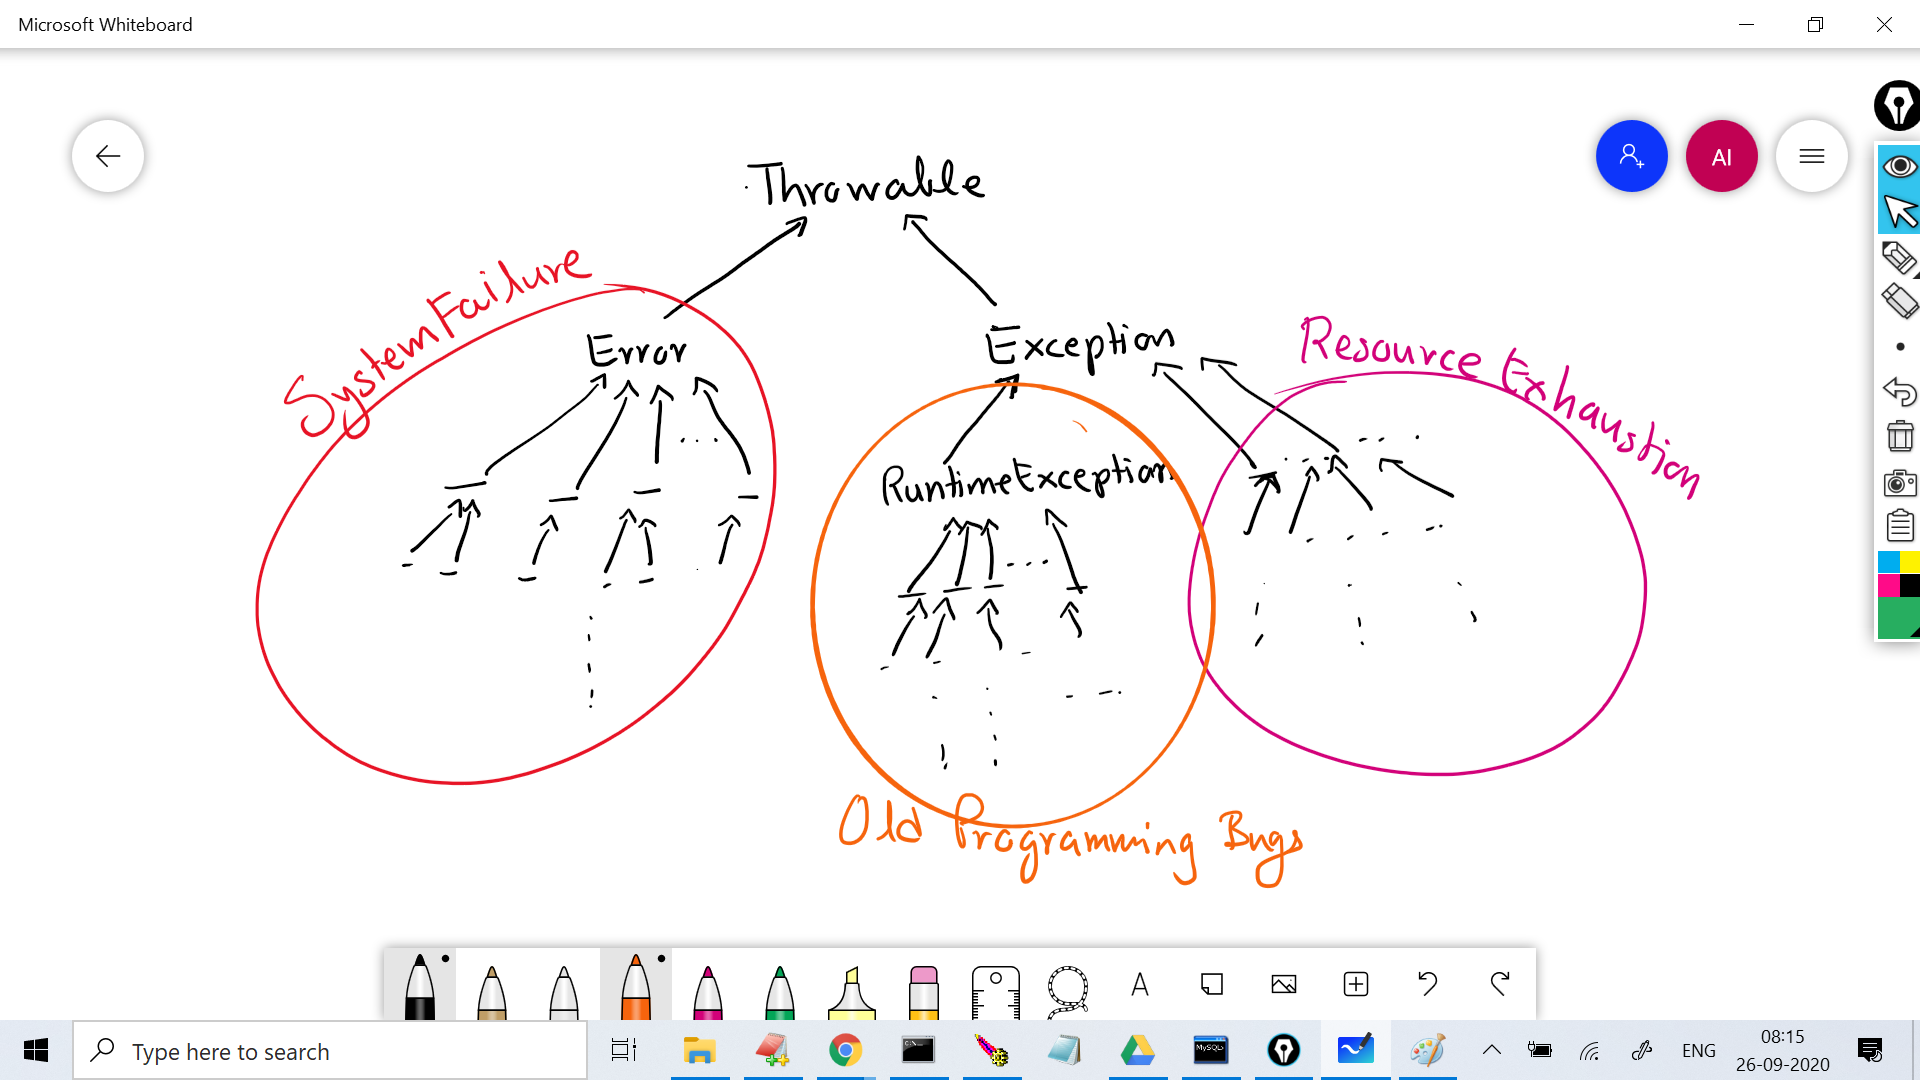 Microsoft Whiteboard
AI
Throwable
SystemFailure
Error
Exception
Resource Exhaustion
RuntimeException
Old Programming Bugs
A
Type here to search
C:\
MySQL
ENG
08:15
26-09-2020